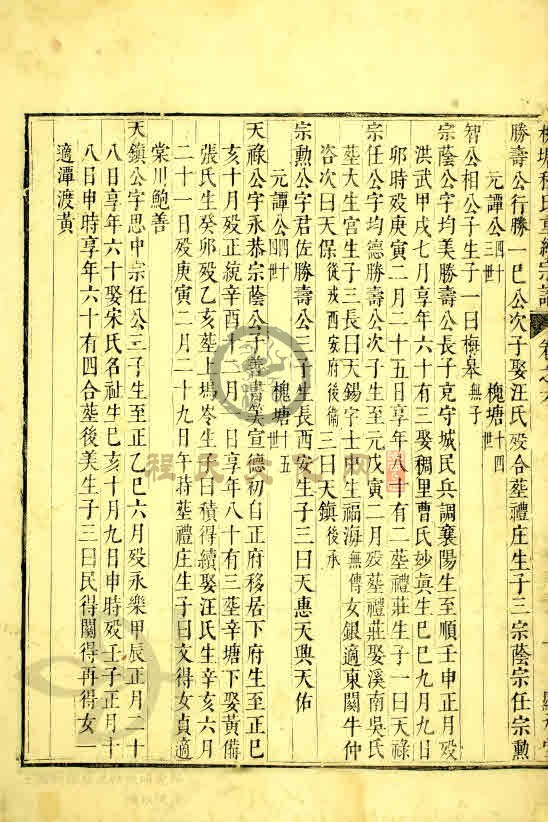 槐塘程氏重續宗譜 卷之六
勝壽公行勝一巳公次子娶汪氏歿合塟禮庄生子三宗蔭宗任宗勲
元譚公四十三世 槐塘十四世
智公相公子生子一曰梅皋無子
宗蔭公字均美勝壽公長子克守城民兵調襄陽生至順壬申正月歿
洪武甲戌七月享年六十有三娶稠里曹氏妙眞生巳巳九月九日
卯時歿庚寅二月二十五日享年八十有二塟禮莊生子一曰天祿
宗任公字均德勝壽公次子生至元戊寅二月歿塟禮莊娶溪南吳氏
塟大生宫生子三長曰天錫字士中生福海無傳女銀適東關牛仲
咨次曰天保後戍西安府後衞三曰天鎮後承
宗勲公字君佐勝壽公三子生長西安生子三曰天惠天與天佑
元譚公四十四世 槐塘十五世
天祿公字永恭宗蔭公子善書筭宣德初自正府移居下府生至正巳
亥十月歿正統辛酉十二月 日享年八十有三塟辛塘下娶黃備
張氏生癸卯歿乙亥塟上塢岑生子曰積得續娶汪氏生辛亥六月
二十一日歿庚寅二月二十九日午時塟禮庄生子曰文得女貞適
棠川鮑善
天鎮公字思中宗任公三子生至正乙巳六月歿永樂甲辰正月二十
八日享年六十娶宋氏名祉生巳亥十月九日申時歿壬子正月十
八日申時享年六十有四合塟後美生子三曰民得關得再得女一
適潭渡黃
程氏文化网